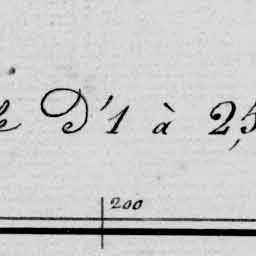 le D'1 à 25
200